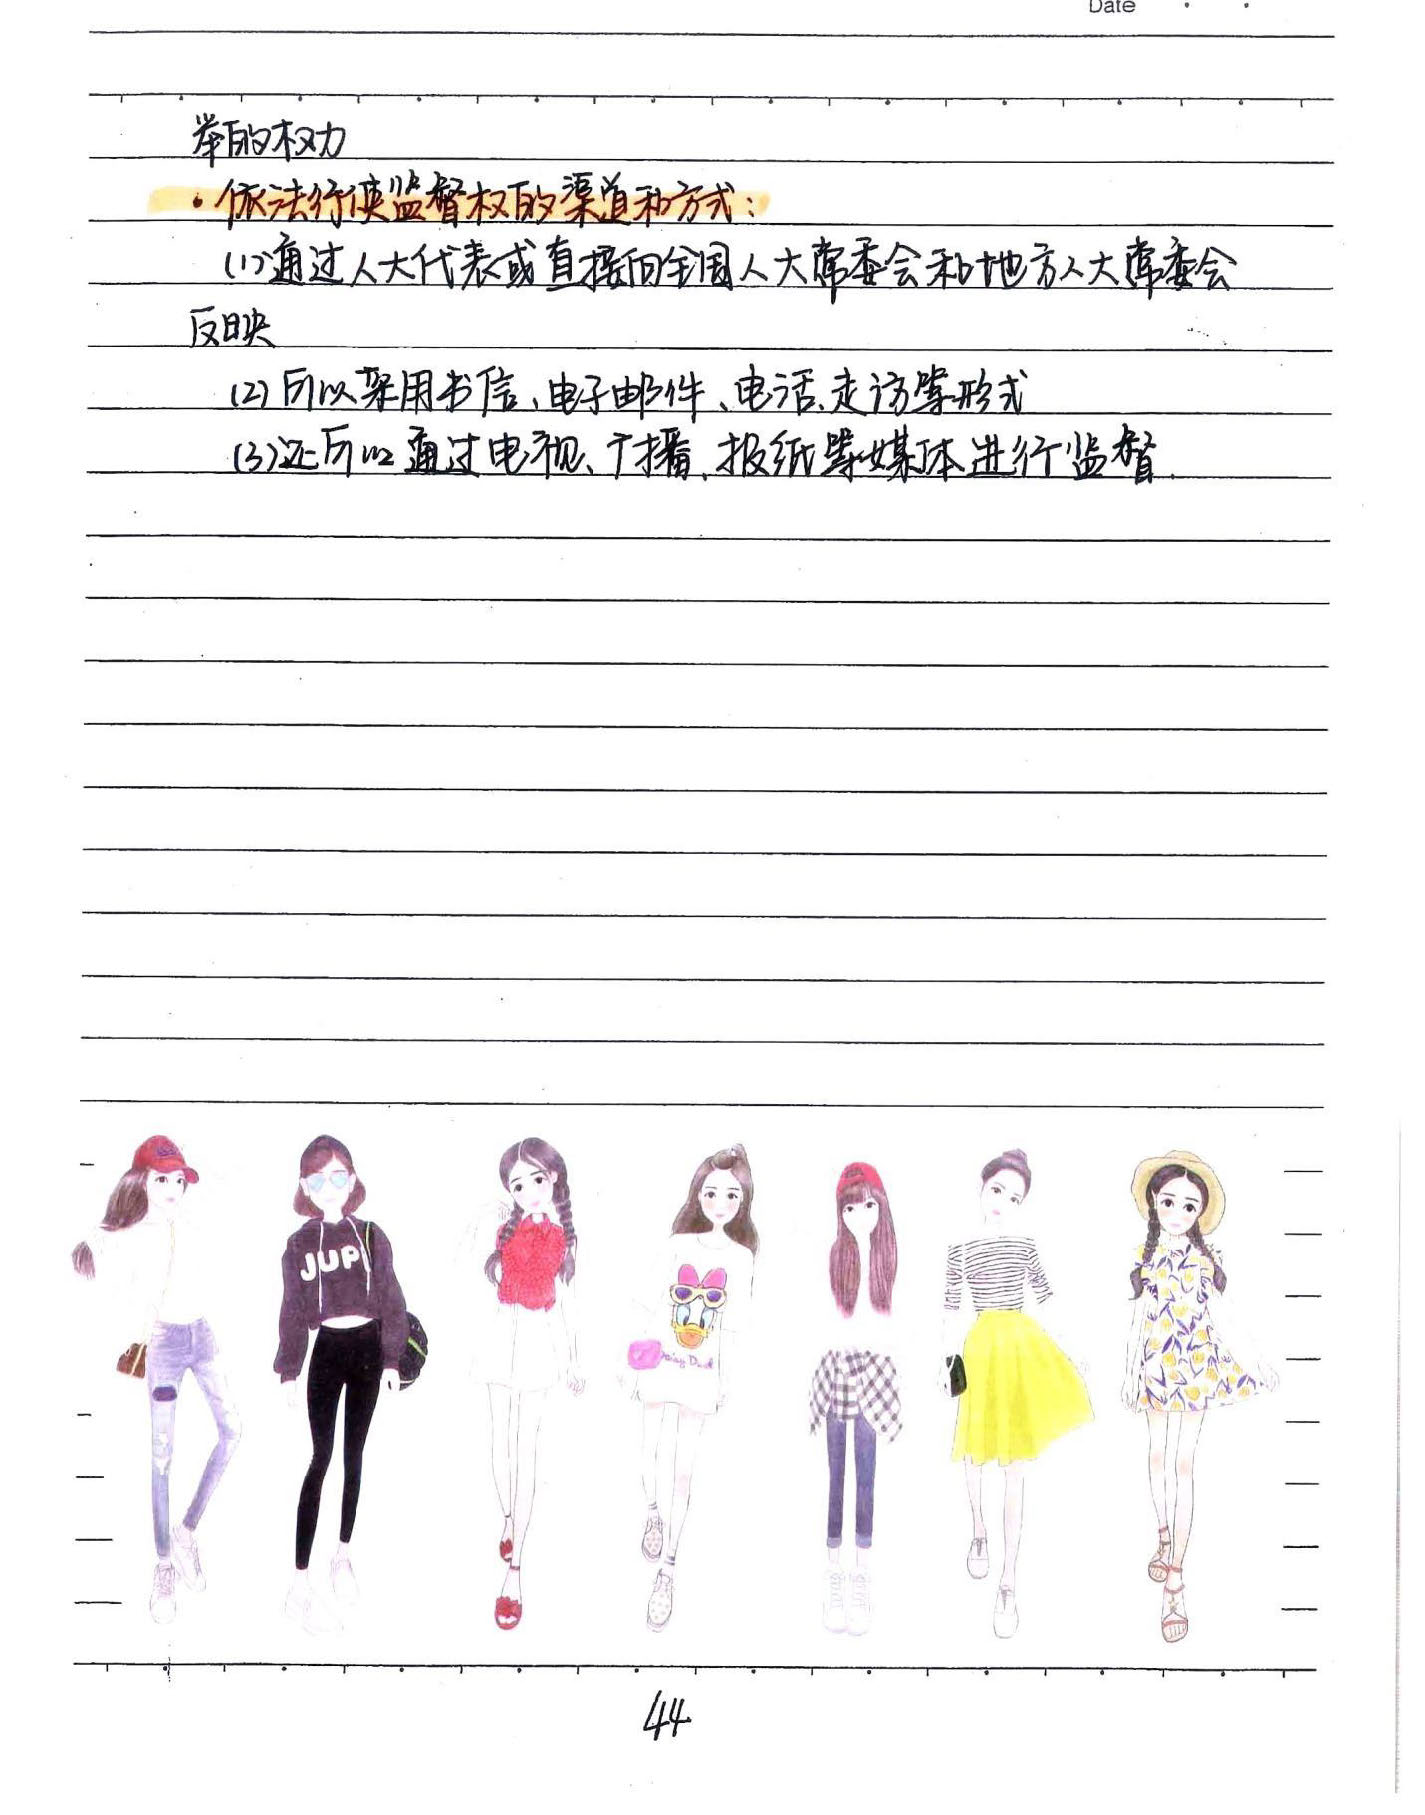 Date
举的权力
·依法行使监督权的渠道和方式:
(1)通过人大代表或直接向全国人大常委会和地方人大常委会
反映
(2)可以采用书信、电子邮件、电话、走访等形式
(3)还可以通过电视、广播、报纸等媒体进行监督.
JUP
Daisy Duck
44